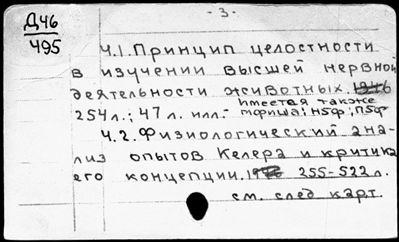 - 3 -
Д46
495
Ч.1. Принцип целостности
в изучении высшей нервной
деятельности животных.
Имеется также
254 л.; 47 л. илл. - мфиша; Н5ф; П5ф
Ч.2. Физиологический ана-
лиз опытов Келера и критика
его концепции. 255-522 л.
см. след карт.